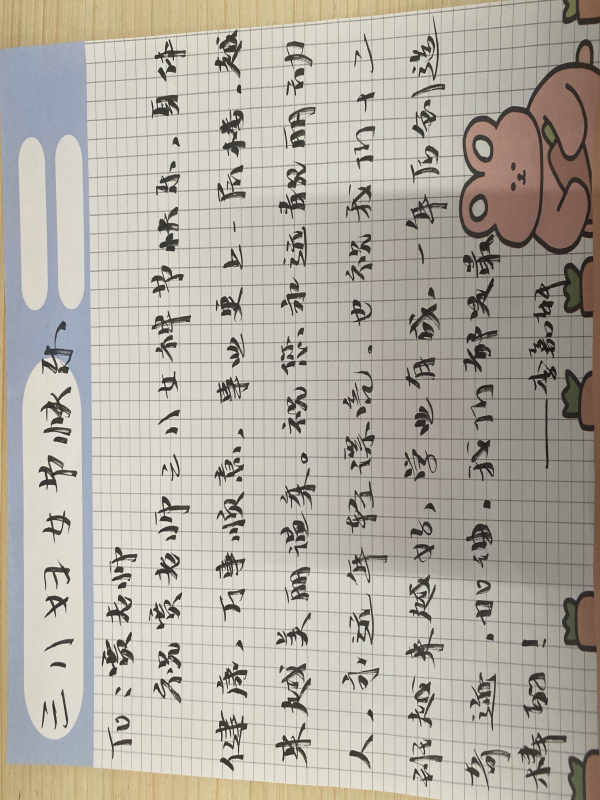 三八妇女节快乐
To：窦老师
祝窦老师三八女神节快乐，身体
健康，万事顺意，事业更上一层楼，越
来越美丽温柔。祝您永远靓丽动
人，永远年轻漂亮。也祝我们十二
班越来越好，学业有成，一年后创造
奇迹，加油。我们都是最
棒的！